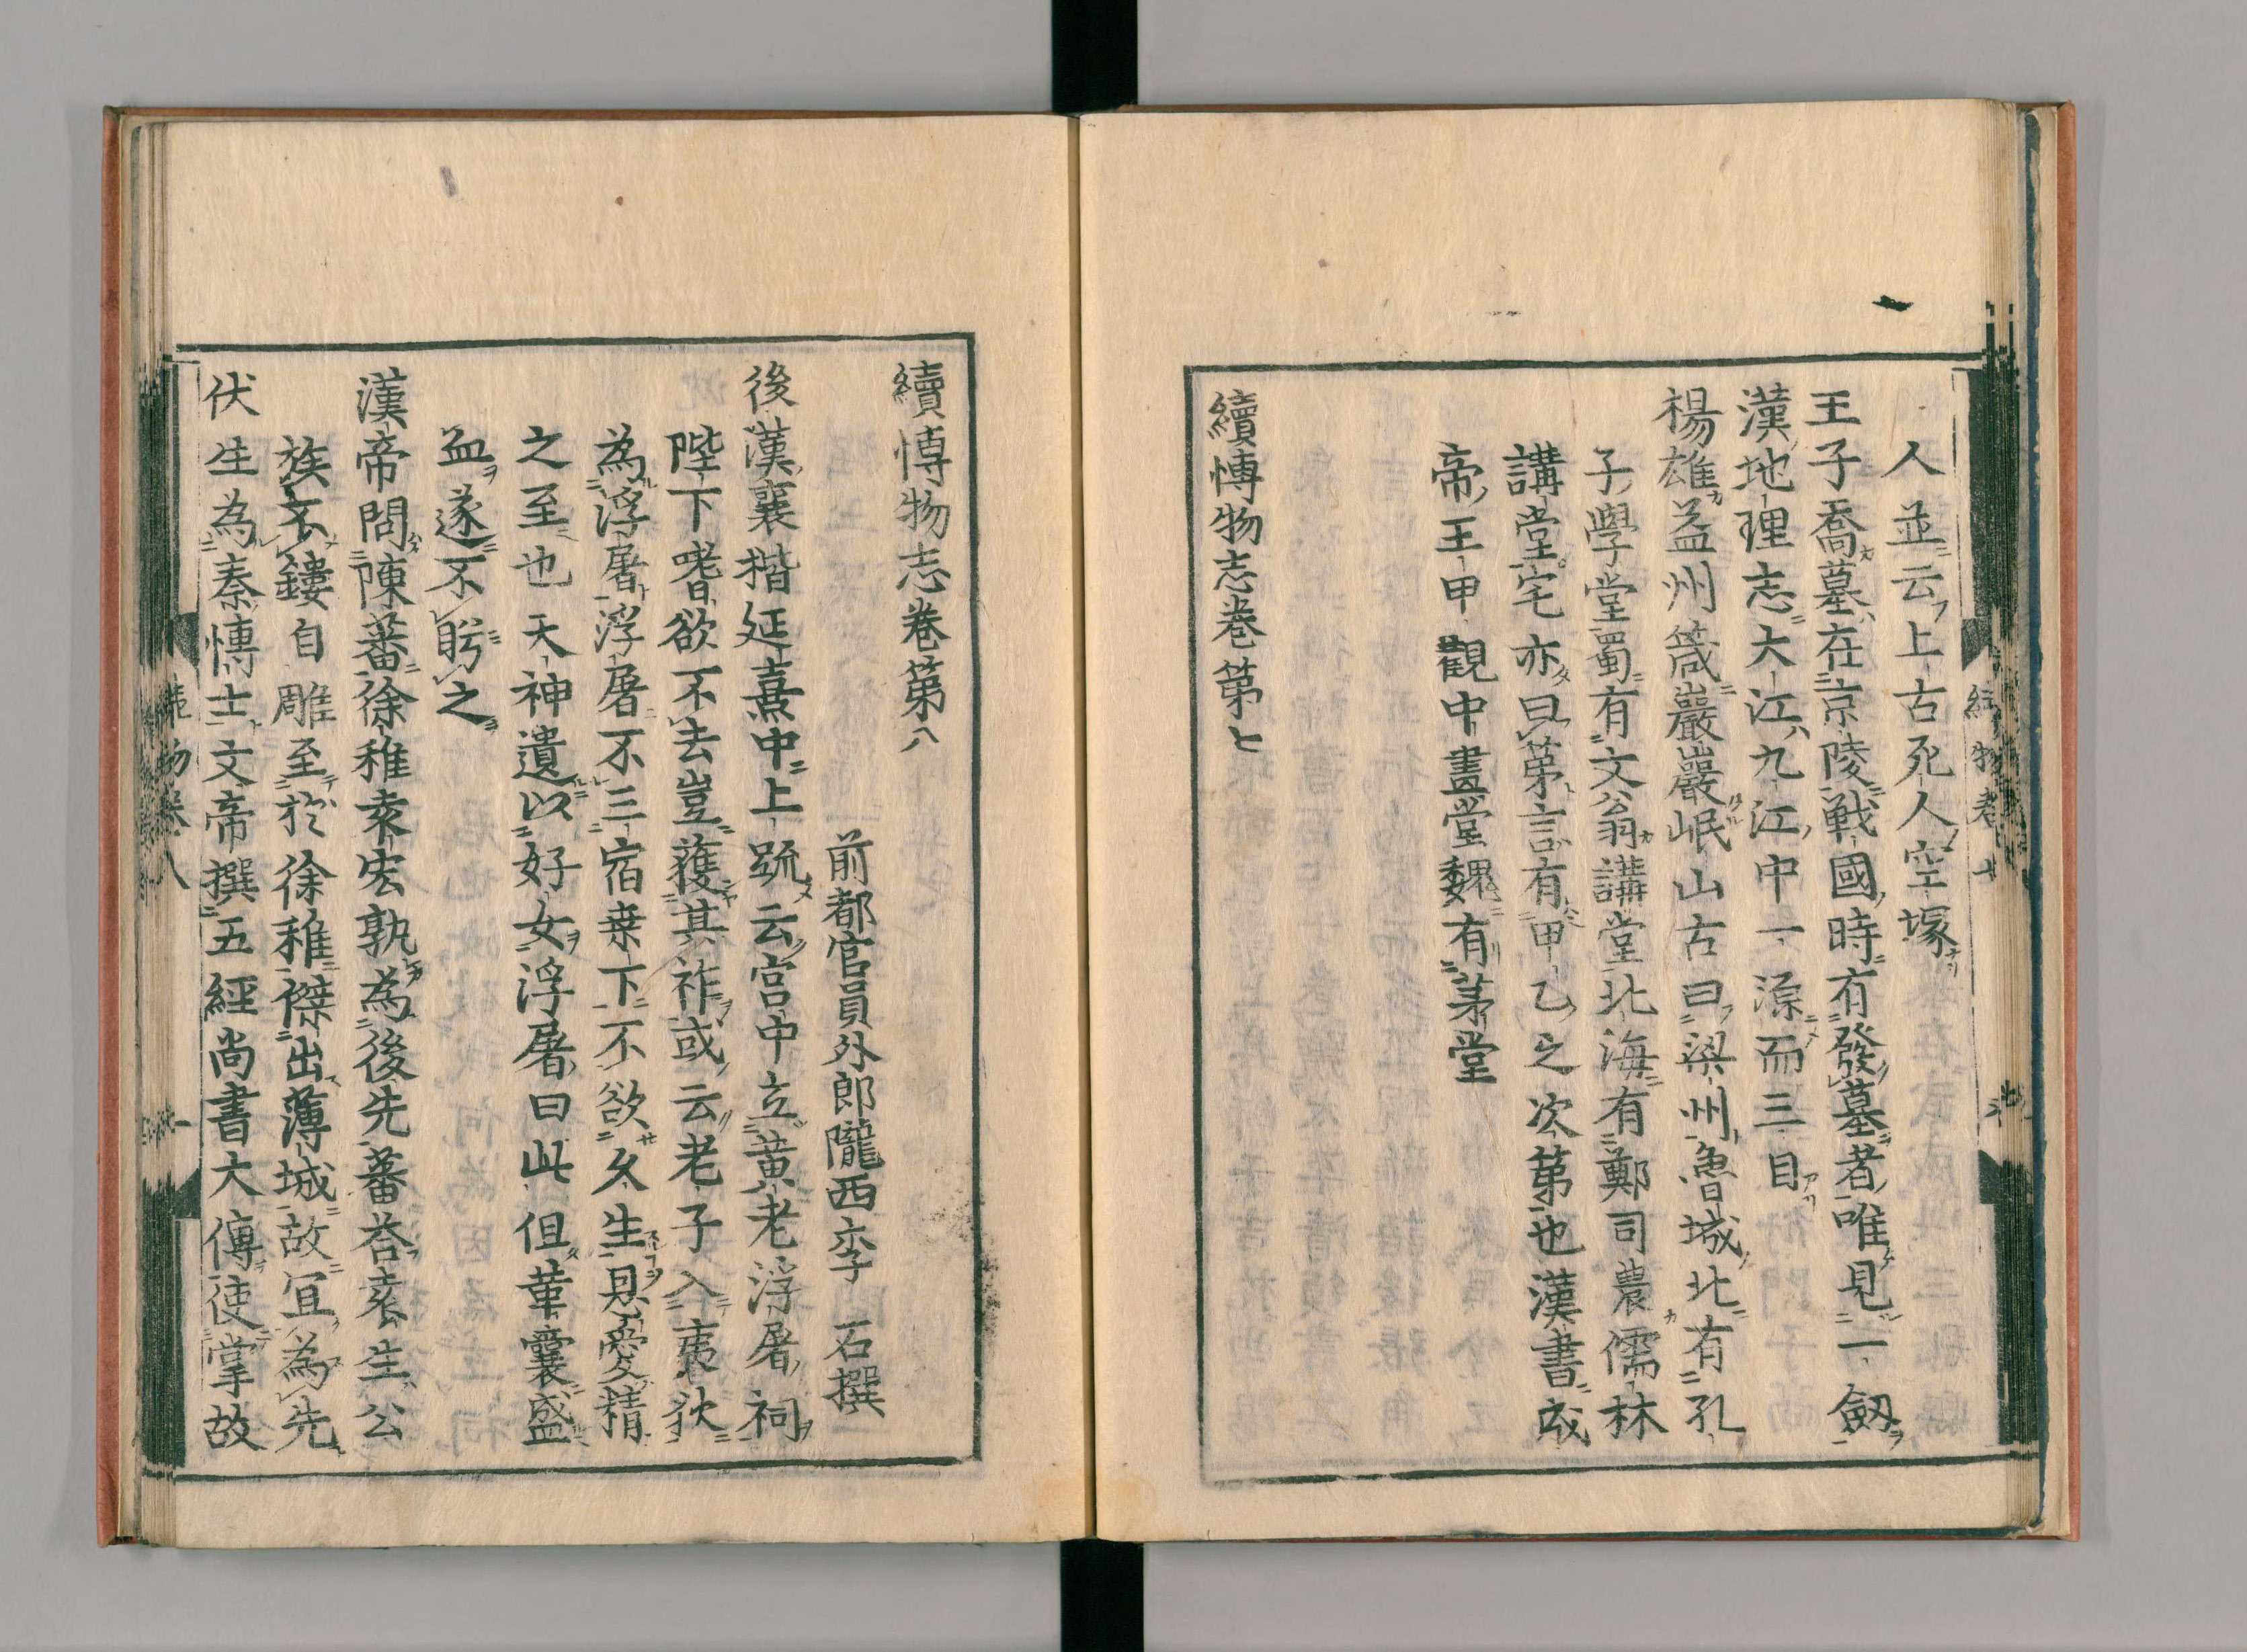 人並云上古死人空塚
王子喬墓在京陵戰國時有發墓者唯見一劔
漢地理志大江九江中一源而三目
楊雄益州箴巖巖岷山古曰梁州魯城北有孔
子學堂蜀有文翁講堂北海有鄭司農儒林
講堂宅亦曰苐言有甲乙之次苐也漢書成
帝王甲觀中畫堂魏有茅堂
續愽物志巻第七
續愽物志巻第八
前都官員外郎隴西李 石撰
後漢襄楷延熹中上䟽云宮中立黄老浮屠祠
陛下嗜欲不去豈獲其祚或云老子入夷狄
為浮屠浮屠不三宿桒下不欲久生恩愛精
之至也天神遺以好女浮屠曰此但革囊盛
血遂不眄之
漢帝問陳蕃徐稚袁宏孰為後先蕃荅袁生公
族不鏤自雕至於徐稚傑出薄城故宜為先
伏生為秦愽士文帝撰五經尚書大傳使掌故